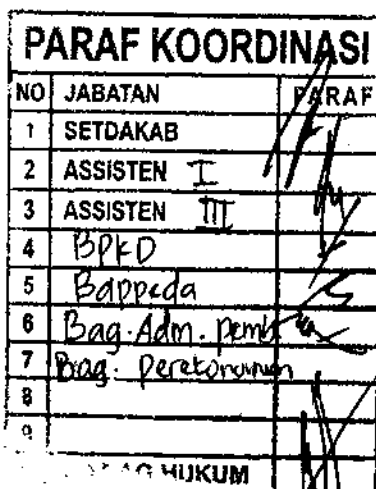 PARAF KOORDINASI
NO JABATAN PARAF
1 SETDAKAB
2 ASSISTEN I
3 ASSISTEN III
4 BPKD
5 Bappeda
6 Bag. Adm. pemb
7 Bag. Perekonomian
8
9
HUKUM